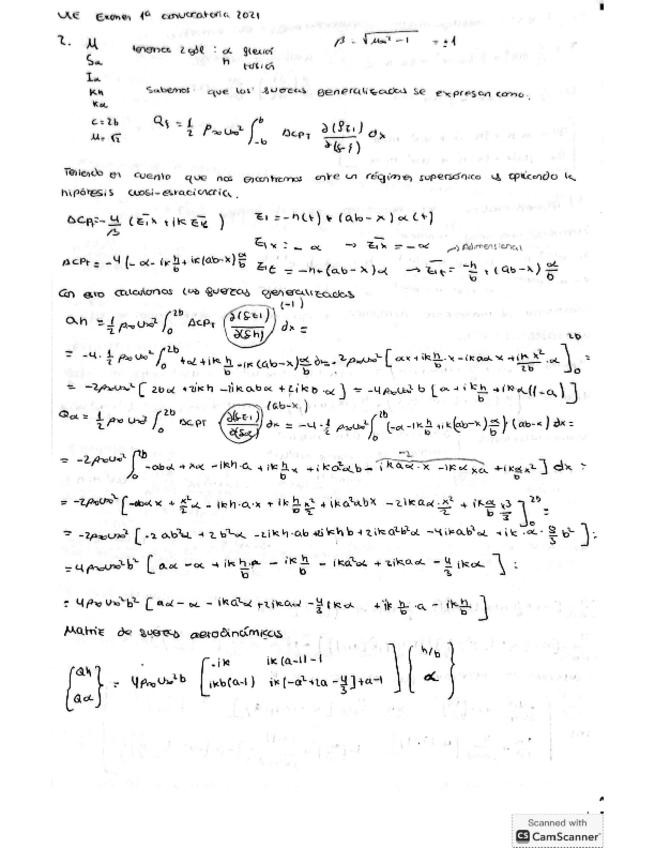 UIE Examen 1ª convocatoria 2021
2. M tenemos 2 gdl : α h β = √(M∞² - 1) = 1
Sα
Iα
Kh Sabemos que las fuerzas generalizadas se expresan como:
Kα
c = 2b Qξ = 1/2 ρ∞ U∞² ∫_{-b}^{b} ΔCPT ∂(δz1)/∂(δξ) dx
M = √2
Teniendo en cuenta que nos encontramos ante un régimen supersónico y aplicando la
hipótesis cuasi-estacionaria.
ΔCPT = -4/β (z̄1x + ik z̄1t) z1 = -h(t) + (ab-x) α(t)
z1x = -α → z̄1x = -α → Adimensional
ΔCPT = -4 (-α - ik h/b + ik(ab-x) α/b z1t = -h + (ab-x) α → z̄1t = -h/b + (ab-x) α/b
Con esto calculamos las fuerzas generalizadas
(-1)
Qh = 1/2 ρ∞ U∞² ∫_0^{2b} ΔCPT ∂(δz1)/∂(δh) dx =
= -4 · 1/2 ρ∞ U∞² ∫_0^{2b} +α + ik h/b - ik(ab-x) α/b dx = -2ρ∞U∞² [αx + ik h/b · x - ikaαx + ik x²/2b · α]_0^{2b} =
= -2ρ∞U∞² [2bα + 2ikh - 2ikabα + 2ikb·α] = -4ρ∞U∞² b [α + ik h/b + ikα(1-a)]
(ab-x)
Qα = 1/2 ρ∞ U∞² ∫_0^{2b} ΔCPT ∂(δz1)/∂(δα) dx = -4 · 1/2 ρ∞U∞² ∫_0^{2b} (-α - ik h/b + ik(ab-x) α/b) (ab-x) dx =
-2
= -2ρ∞U∞² ∫_0^{2b} -abα + xα - ikh·a + ik h/b x + ika²αb - ikaα·x - ikα xa + ik α/b x²] dx =
= -2ρ∞U∞² [-abαx + x²/2 α - ikh·a·x + ik h/b x²/2 + ika²αbx - 2ikaα·x²/2 + ik α/b x³/3]_0^{2b} =
= -2ρ∞U∞² [-2ab²α + 2b²α - 2ikh·ab + 2ikhb + 2ika²b²α - 4ikab²α + ik·α·8/3 b²] =
= 4ρ∞U∞²b² [aα - α + ik h/b a - ik h/b - ika²α + 2ikaα - 4/3 ikα] =
= 4ρ∞U∞²b² [aα - α - ika²α + 2ikaα - 4/3 ikα + ik h/b · a - ik h/b]
Matriz de fuerzas aerodinámicas
{Qh Qα} = 4ρ∞U∞²b [-ik ik(a-1)-1 ikb(a-1) ik[-a²+2a-4/3]+a-1] {h/b α}
Scanned with
CS CamScanner